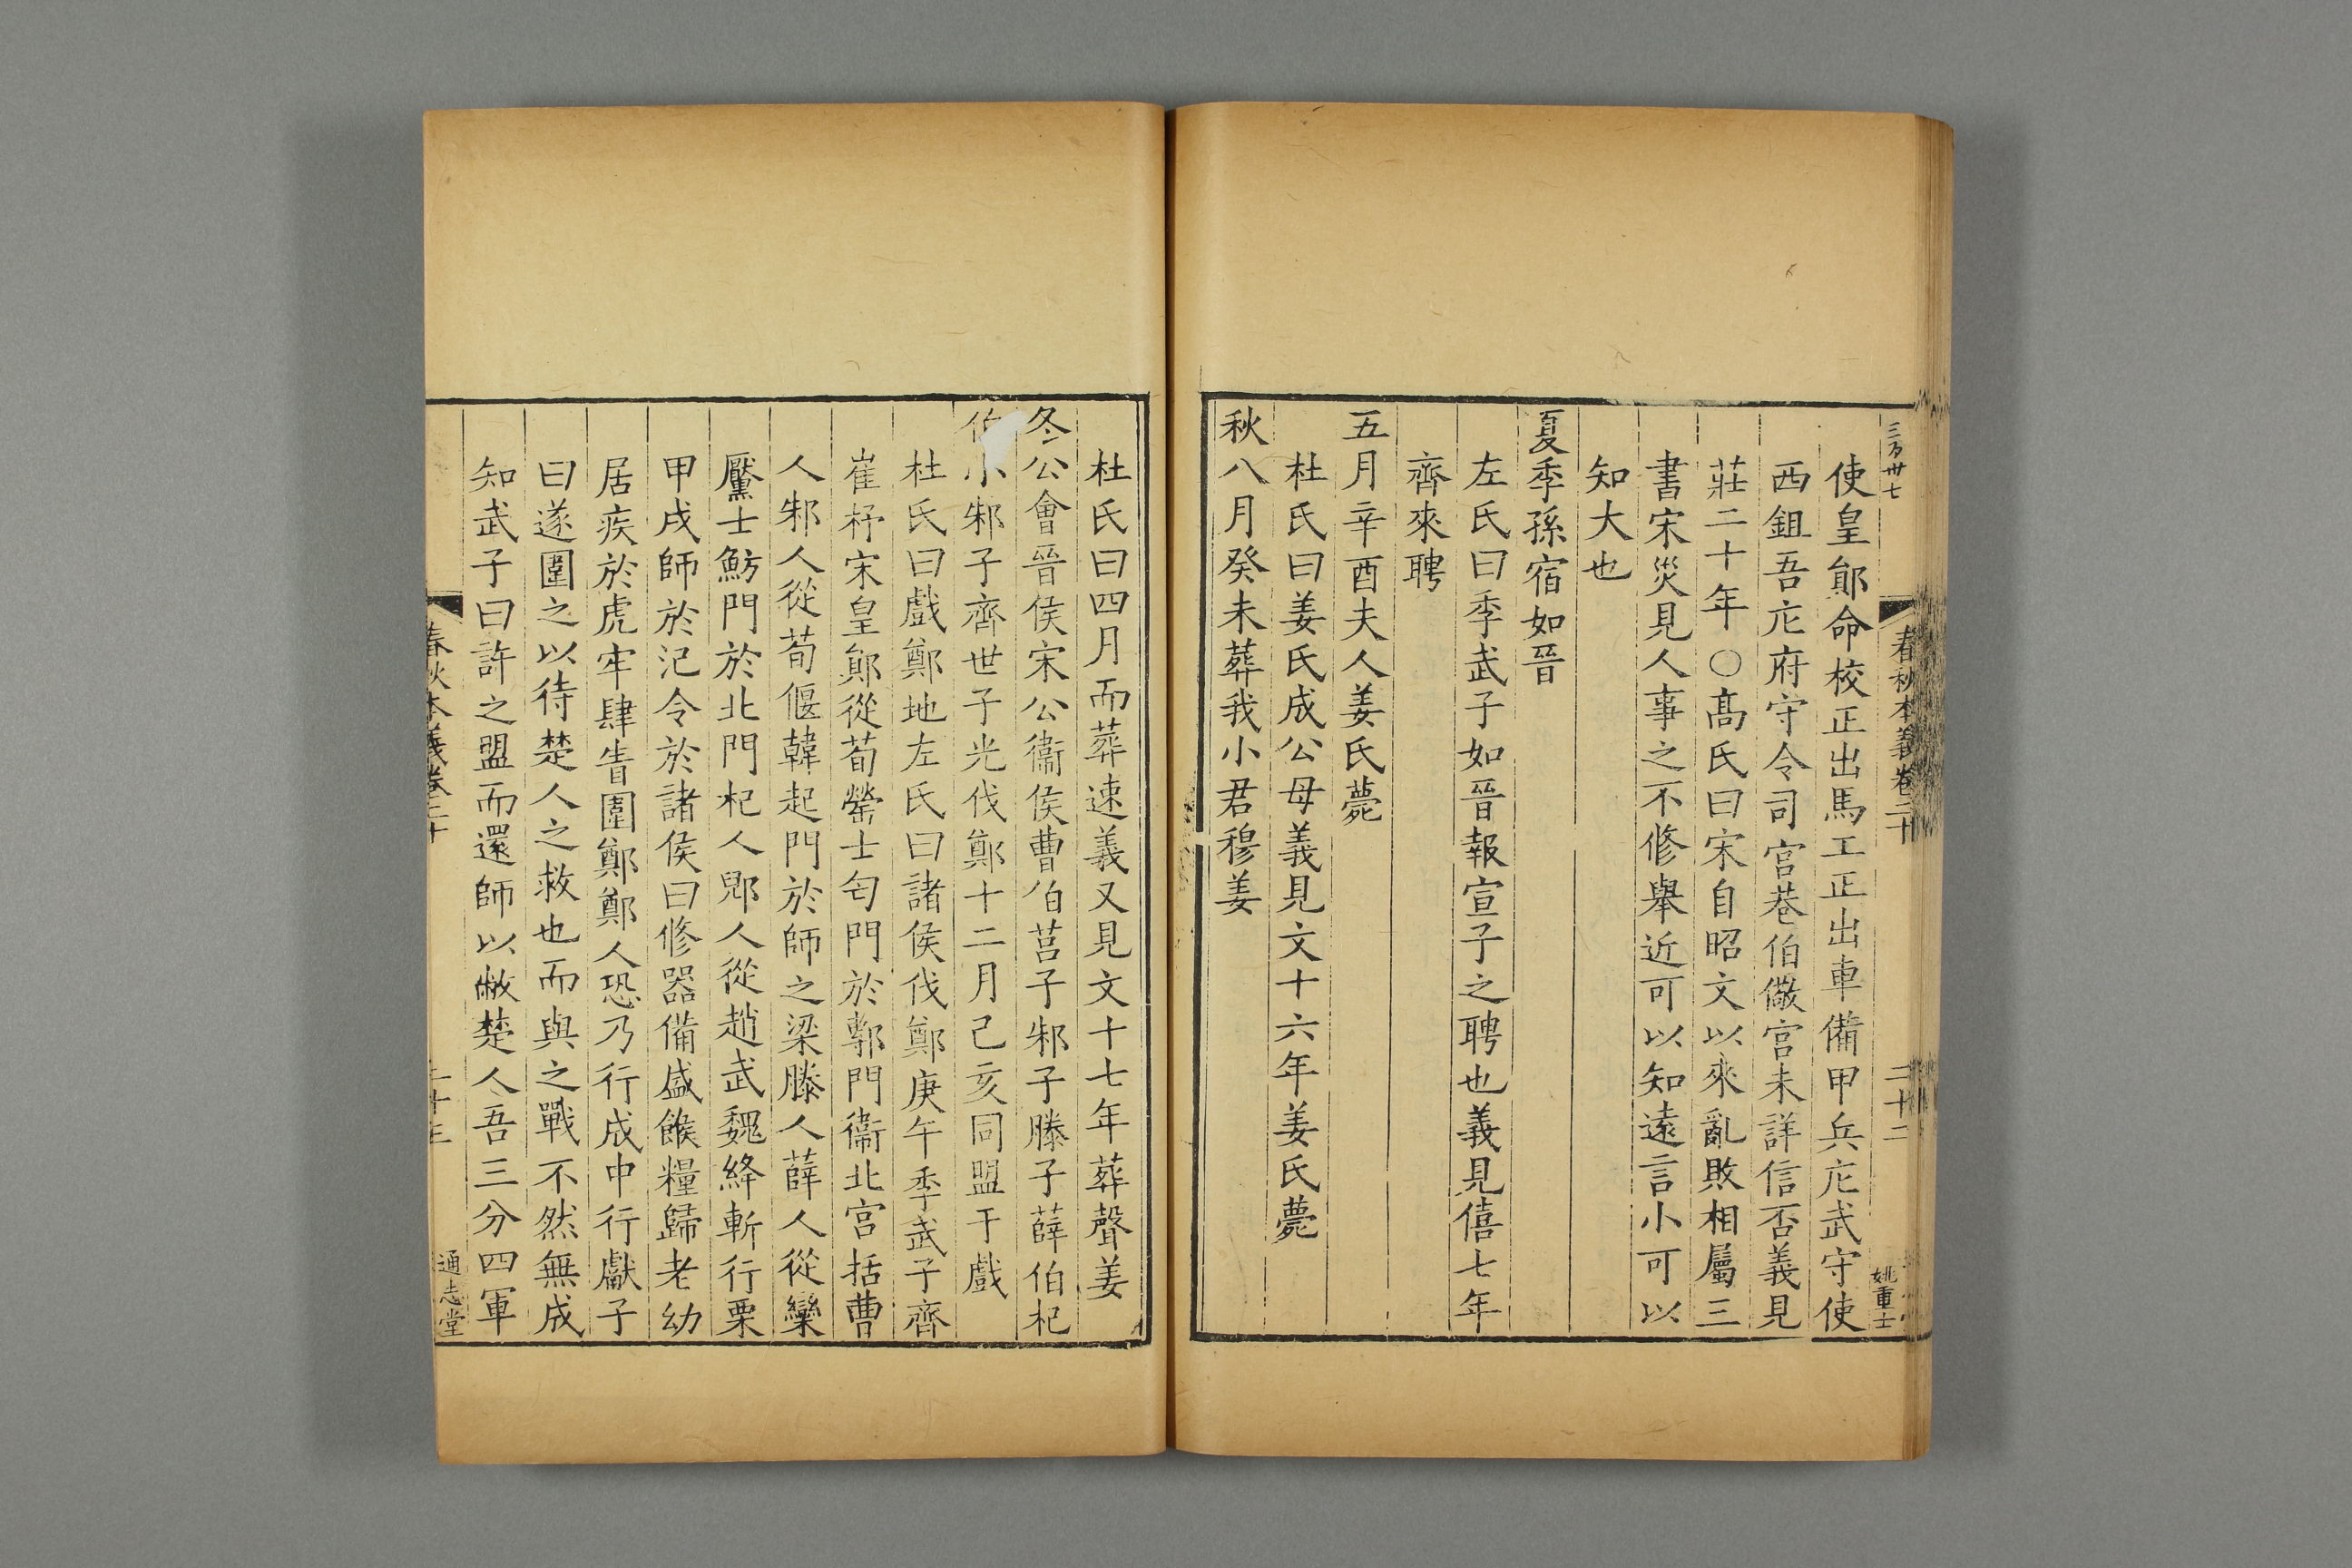 三万卅七
春秋本義卷二十
二十二
姚重士
使皇鄖命校正出馬工正出車備甲兵庀武守使
西鉏吾庀府守令司宮巷伯儆宮未詳信否義見
莊二十年〇髙氏曰宋自昭文以來亂敗相屬三
書宋災見人事之不修舉近可以知遠言小可以
知大也
夏季孫宿如晉
左氏曰季武子如晉報宣子之聘也義見僖七年
齊來聘
五月辛酉夫人姜氏薨
杜氏曰姜氏成公母義見文十六年姜氏薨
秋八月癸未葬我小君穆姜
杜氏曰四月而葬速義又見文十七年葬聲姜
冬公會晉侯宋公衞侯曹伯莒子邾子滕子薛伯杞
伯小邾子齊世子光伐鄭十二月己亥同盟于戲
杜氏曰戲鄭地左氏曰諸侯伐鄭庚午季武子齊
崔杼宋皇鄖從荀罃士匄門於鄟門衞北宮括曹
人邾人從荀偃韓起門於師之梁滕人薛人從欒
黶士魴門於北門杞人郳人從趙武魏絳斬行栗
甲戌師於氾令於諸侯曰修器備盛餱糧歸老幼
居疾於虎牢肆眚圍鄭鄭人恐乃行成中行獻子
曰遂圍之以待楚人之救也而與之戰不然無成
知武子曰許之盟而還師以敝楚人吾三分四軍
春秋本義卷二十
二十三
通志堂